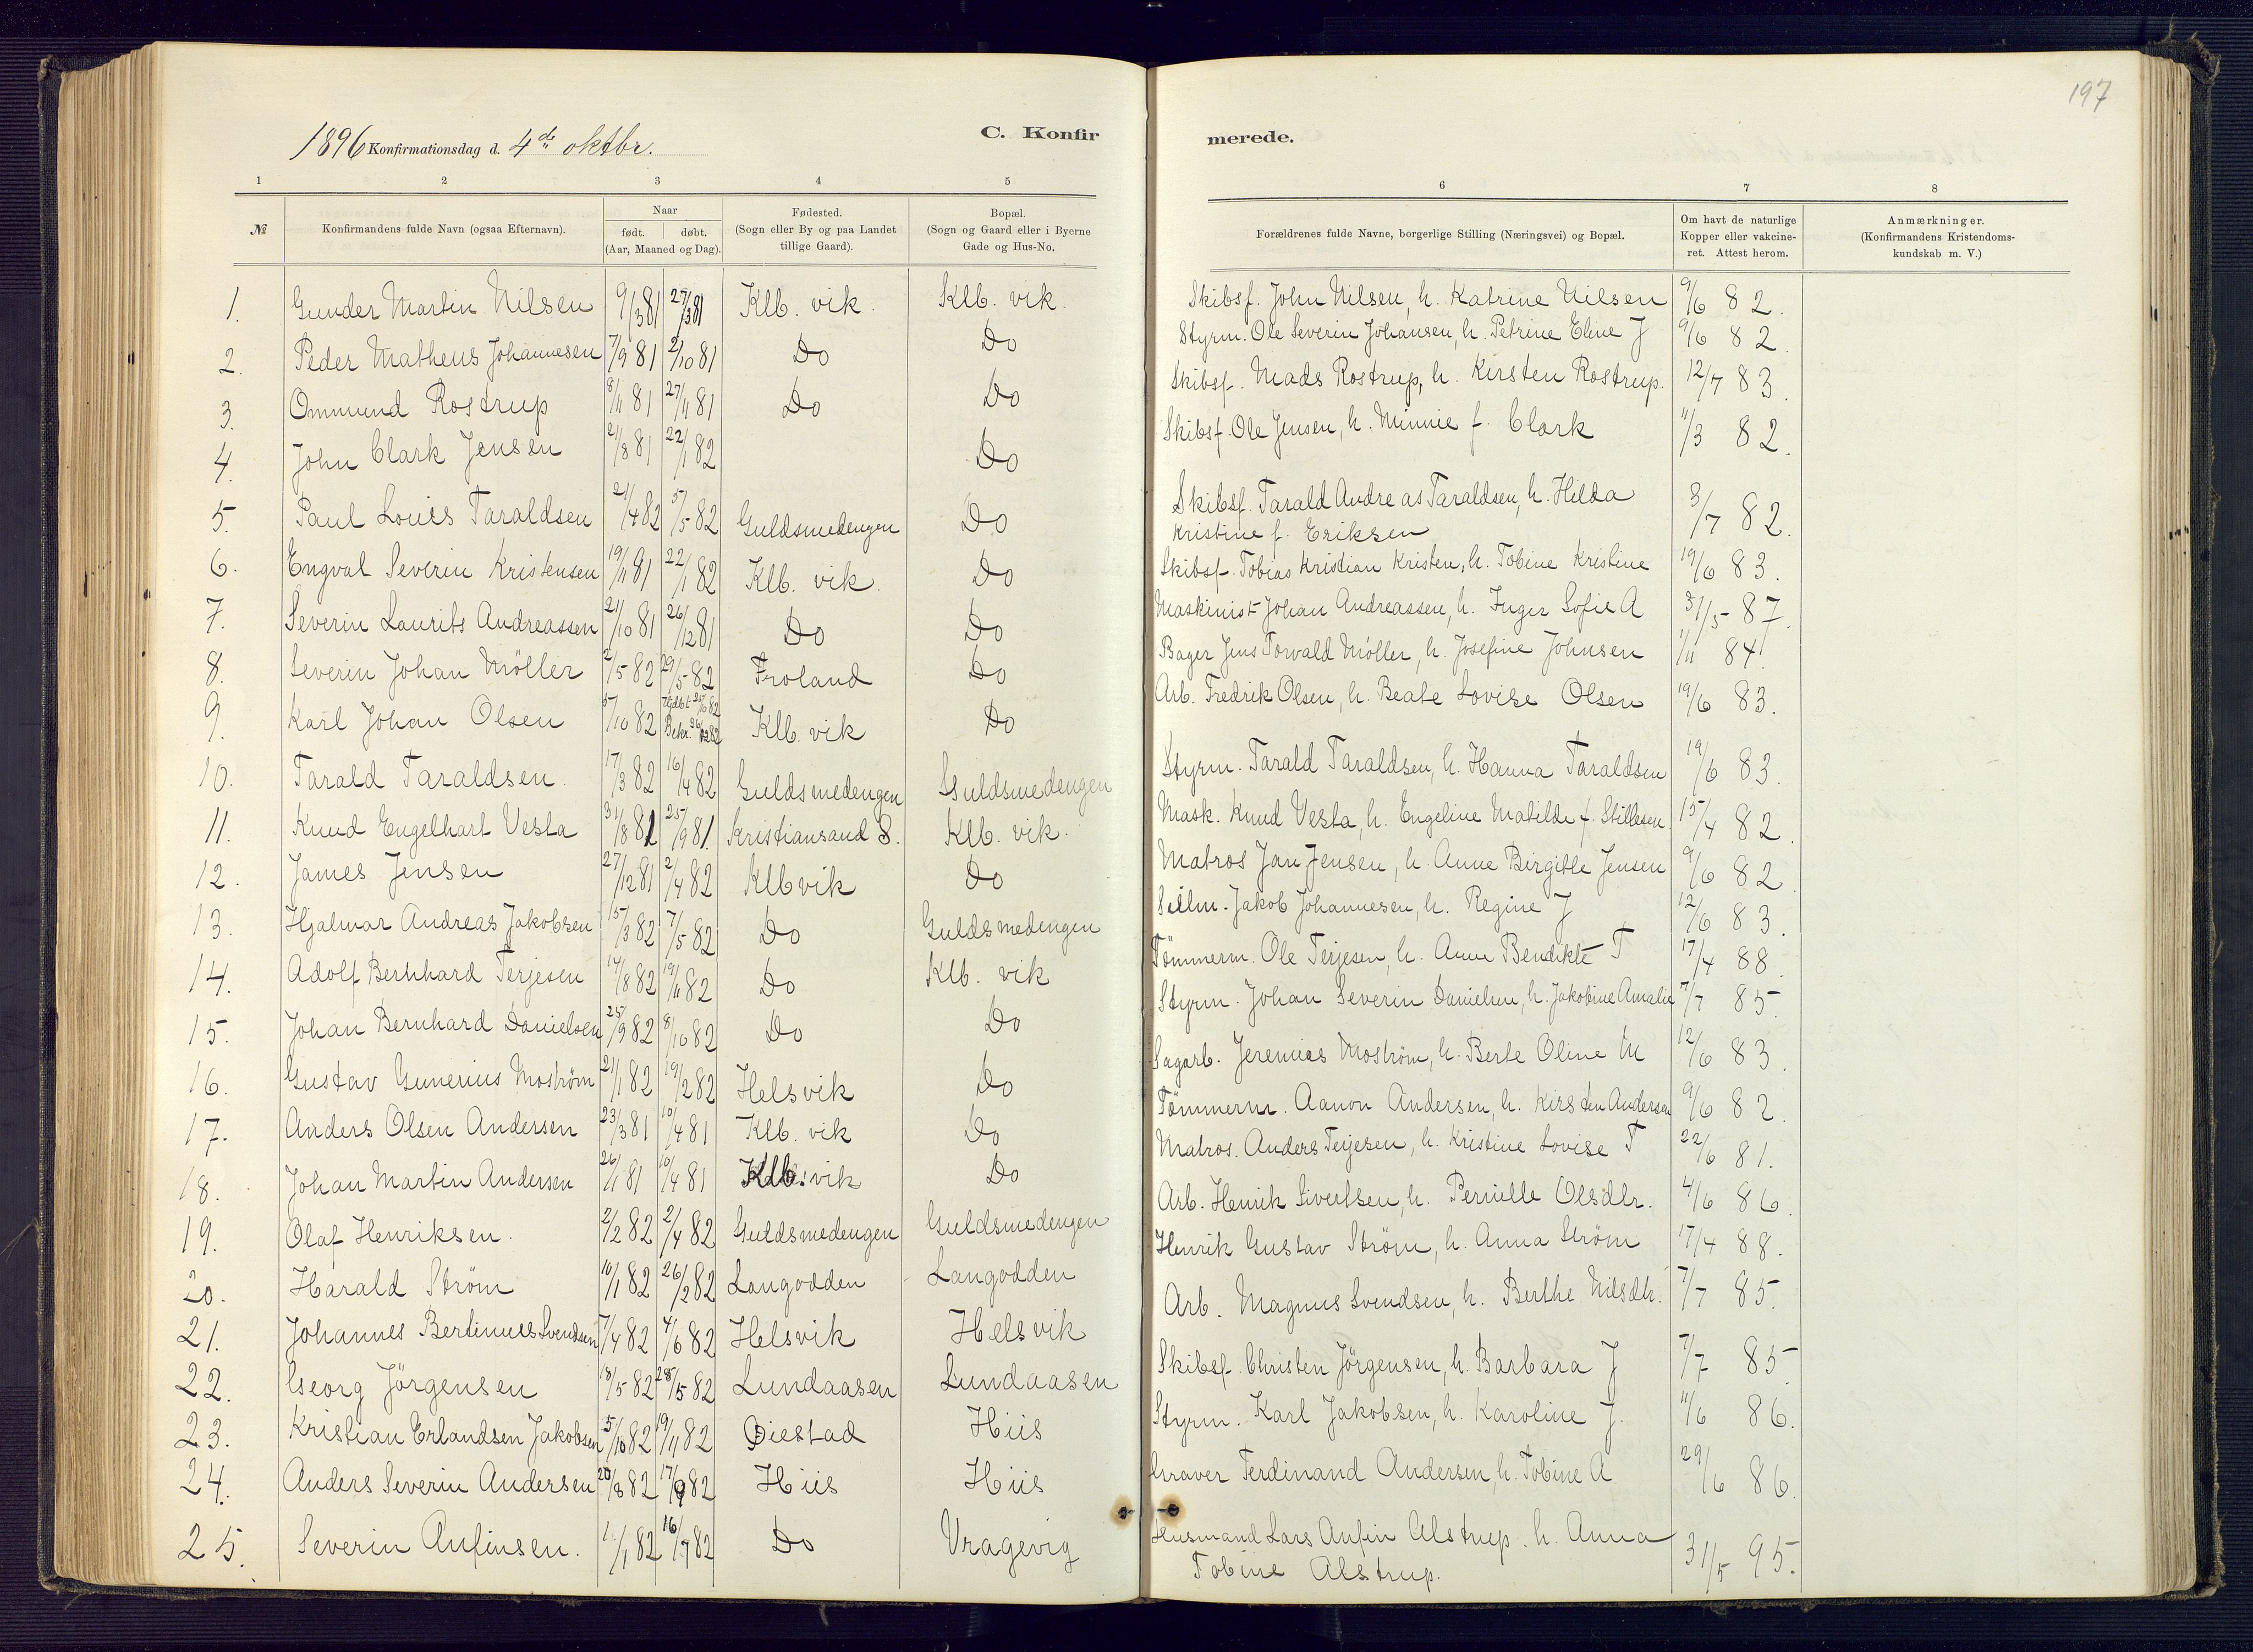 197
C. Konfirmerede.
1896 Konfirmationsdag d. 4de oktbr.
1 2 3 4 5 6 7 8
№ | Konfirmandens fulde Navn (ogsaa Efternavn). | Naar født. døbt. (Aar, Maaned og Dag). | Fødested. (Sogn eller By og paa Landet tillige Gaard). | Bopæl. (Sogn og Gaard eller i Byerne Gade og Hus-No. | Forældrenes fulde Navne, borgerlige Stilling (Næringsvei) og Bopæl. | Om havt de naturlige Kopper eller vakcineret. Attest herom. | Anmærkninger. (Konfirmandens Kristendomskundskab m. V.)
1. Gunder Martin Nilsen 9/3 81 27/3 81 Klb. vik. Klb. vik. Skibsf. John Nilsen, h. Katrine Nilsen 9/6 82.
2. Peder Matheus Johannesen 7/9 81 2/10 81 Do Do Styrm. Ole Severin Johansen, h. Petrine Eline J 9/6 82.
3. Ommund Rostrup 8/11 81 27/11 81 Do Do Skibsf. Mads Rostrup, h. Kirsten Rostrup. 12/7 83.
4. John Clark Jensen 2/8 81 22/1 82 Do Skibsf. Ole Jensen, h. Minnie f. Clark 11/3 82.
5. Paul Louis Taraldsen 21/4 82 5/5 82 Guldsmedengen Do Skibsf. Tarald Andreas Taraldsen, h. Hilda
Kristine f. Eriksen 3/7 82.
6. Engval Severin Kristensen 19/11 81 22/1 82 Klb. vik. Do Skibsf. Tobias Kristian Kristen, h. Tobine Kristine 19/6 83.
7. Severin Laurits Andreassen 21/10 81 26/12 81 Do Do Maskinist Johan Andreassen, h. Inger Sofie A 31/5 87.
8. Severin Johan Möller 2/5 82 29/5 82 Froland Do Bager Jens Torvald Möller, h. Josefine Johnsen 1/11 84.
9. Karl Johan Olsen 5/10 82 Bekr. 26/12 82 Klb. vik Do Arb. Fredrik Olsen, h. Beate Lovise Olsen 19/6 83.
10. Tarald Taraldsen. 17/3 82 16/4 82 Guldsmedengen Guldsmedengen Styrm. Tarald Taraldsen, h. Hanna Taraldsen 19/6 83.
11. Knud Engelhart Vesta 31/8 81 25/9 81. Kristiansand S. Klb. vik. Mask. Knud Vesta, h. Engeline Matilde f. Stillesen. 15/4 82.
12. James Jensen 27/12 81 2/4 82 Klbvik Do Matros Jan Jensen, h. Anne Birgitte Jensen 9/6 82.
13. Hjalmar Andreas Jakobsen 15/3 82 7/5 82 Do Guldsmedengen Seilm. Jakob Johannesen, h. Regine J 12/6 83.
14. Adolf Bernhard Terjesen 14/8 82 19/11 82 Do Klb. vik Tömmerm. Ole Terjesen, h. Anne Bendikte T 17/4 88.
15. Johan Bernhard Danielsen 25/9 82 8/10 82 Do Do Styrm. Johan Severin Danielsen, h. Jakobine Amalie 7/7 85.
16. Gustav Gunerius Moström 21/1 82 19/2 82 Helsvik Do Sagarb. Jeremias Moström, h. Berte Oline M 12/6 83.
17. Anders Olsen Andersen 23/3 81 10/4 81 Klb. vik Do Tömmerm. Aanon Andersen, h. Kirsten Andersen 9/6 82.
18. Johan Martin Andersen 26/1 81 10/4 81 Klb. vik Do Matros. Anders Terjesen, h. Kristine Lovise T 22/6 81.
19. Olaf Henriksen. 2/2 82 2/4 82 Guldsmedengen Guldsmedengen Arb. Henrik Sivertsen, h. Pernille Olsdtr. 4/6 86.
20. Harald Ström 10/1 82 26/2 82 Langodden Langodden Henrik Gustav Ström, h. Anna Ström 17/4 88.
21. Johannes Bertinus Svendsen 7/4 82 4/6 82 Helsvik Helsvik Arb. Magnus Svendsen, h. Berthe Nilsdtr. 7/7 85.
22. Georg Jörgensen 18/5 82 28/5 82 Lundaasen Lundaasen Skibsf. Christen Jörgensen, h. Barbara J 7/7 85
23. Kristian Erlandsen Jakobsen 5/10 82 19/11 82 Öiestad Hiis Styrm. Karl Jakobsen, h. Karoline J. 11/6 86.
24. Anders Severin Andersen 20/8 82 17/9 82 Hiis Hiis Graver Ferdinand Andersen, h. Tobine A 29/6 86.
25. Severin Anfinsen. 1/1 82 16/7 82 Do Vragevig Lensmand Lars Anfin Alstrup. h. Anna
Tobine Alstrup. 31/5 95.